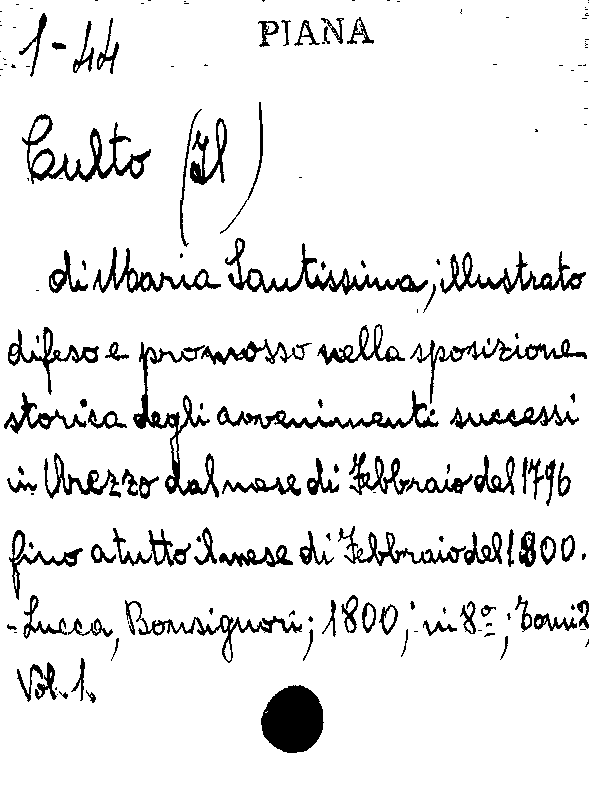 PIANA
1-44
Culto (Il)
di Maria Santissima, illustrato
difeso e promosso nella sposizione
storica degli avvenimenti successi
in Arezzo dal mese di Febbraio del 1796
fino a tutto il mese di Febbraio del 1800.
-Lucca, Bonsignori; 1800; in 8º; Tomi 2
Vol. 1.